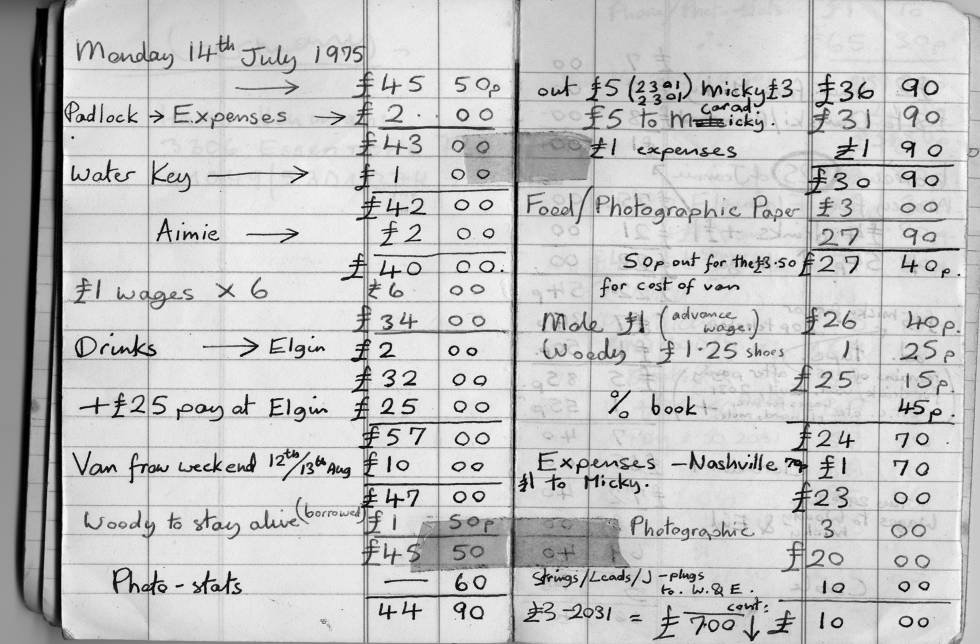 Monday 14th July 1975
→ £45 50p
Padlock → Expenses → £2 . 00
£43 00
Water Key → £1 00
£42 00
Aimie → £2 00
£40 00.
£1 wages × 6 £6 00
£34 00
Drinks → Elgin £2 00
£32 00
+£25 pay at Elgin £25 00
£57 00
Van from weekend 12th/13th Aug £10 00
£47 00
Woody to stay alive (borrowed) £1 50p
£45 50
Photo-stats — 60
44 90
out £5 (2301 2301) micky £3 £36 90
£5 to Micky. carad £31 90
£1 expenses £1 90
£30 90
Food/Photographic Paper £3 00
27 90
50p out for the £3.50 £27 40p.
for cost of van
Mole £1 (advance wage.) £26 40p.
Woody £1.25 shoes 1 25p
£25 15p.
% book 45p.
£24 70
Expenses - Nashville £1 70
£1 to Micky.
£23 00
Photographic 3 00
£20 00
Strings/Leads/J-plugs
to. W. & E. 10 00
£3-2031 = £7.00 cont: ↓ £ 10 00